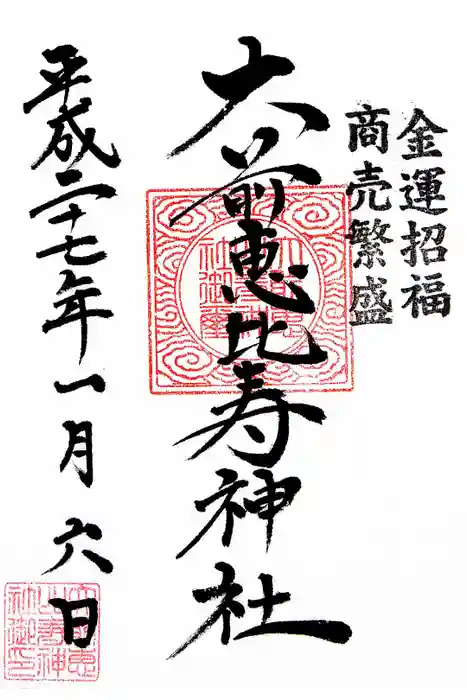 金運招福
商売繁盛
大前恵比寿神社
平成二十七年一月六日